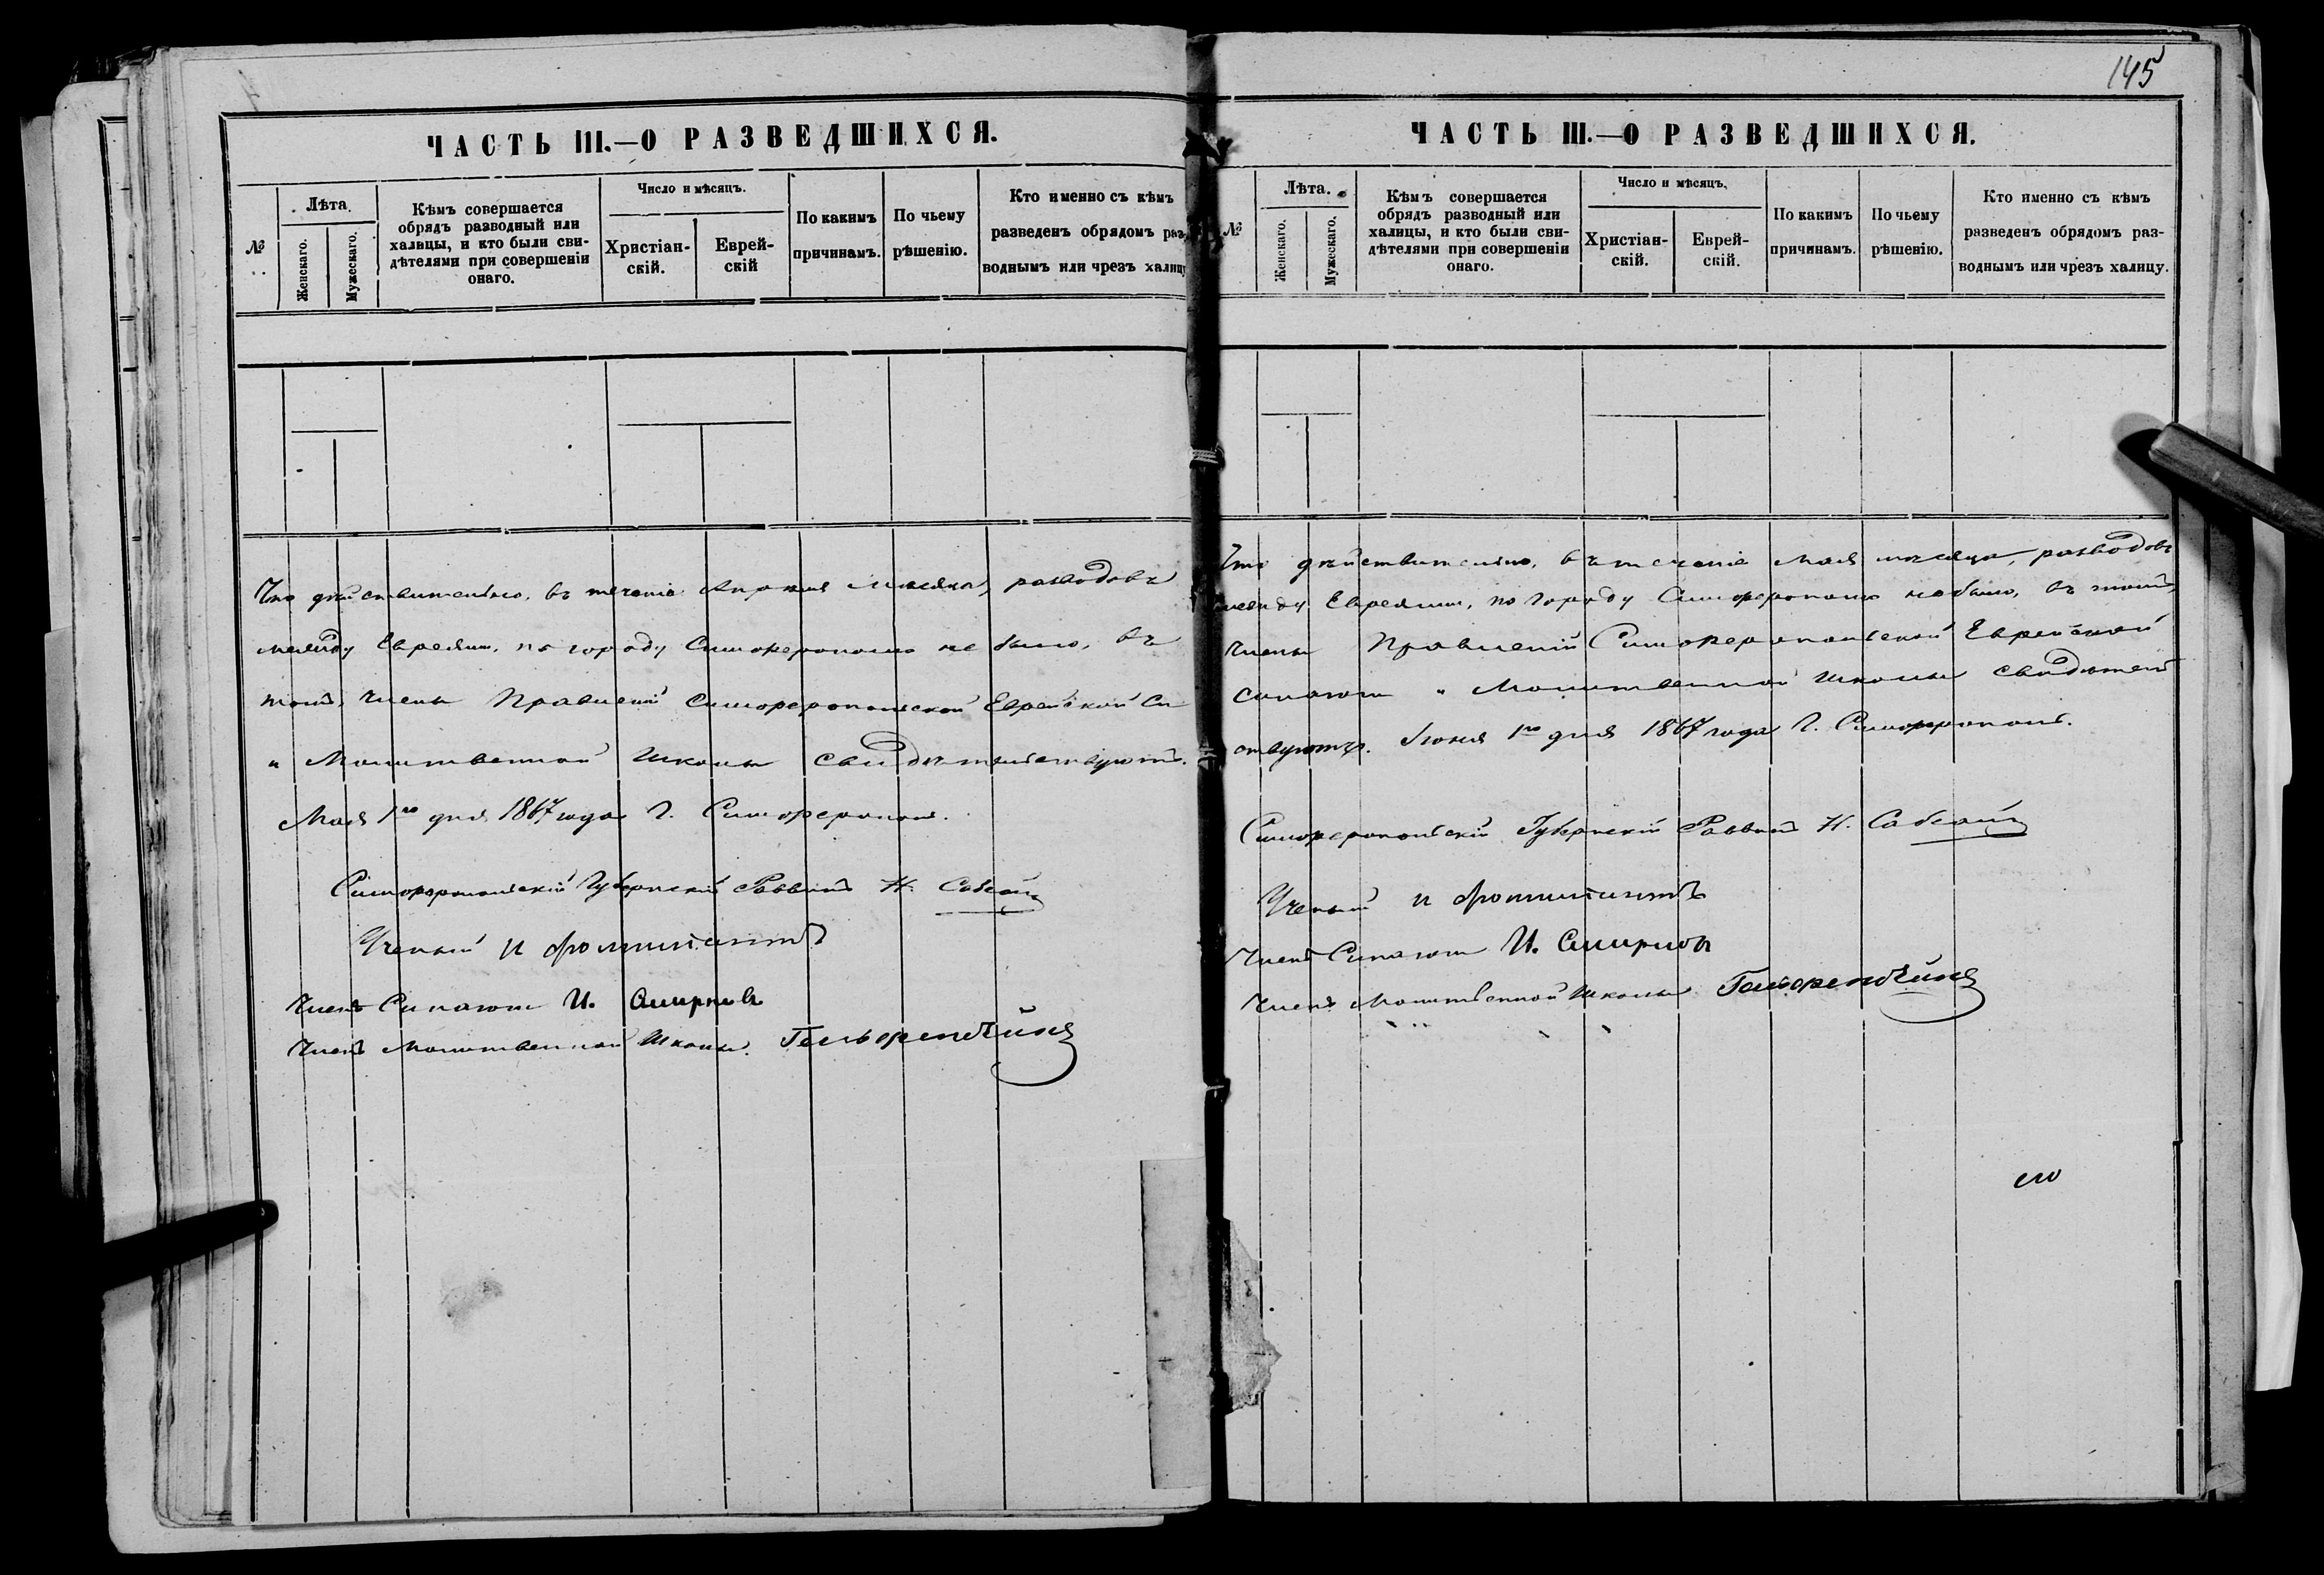 ЧАСТЬ III.—О РАЗВЕДШИХСЯ.
№
Лѣта.
Женскаго.
Мужескаго.
Кѣмъ совершается
обрядъ разводный или
халицы, и кто были сви-
дѣтелями при совершеніи
онаго.
Число и мѣсяцъ.
Христіан-
скій.
Еврей-
скій
По какимъ
причинамъ.
По чьему
рѣшенію.
Кто именно съ кѣмъ
разведенъ обрядомъ раз-
воднымъ или чрезъ халицу
Что дѣйствительно, въ теченіе Апрѣля мѣсяца, разводовъ
между Евреями, по городу Симферополю не было, въ
томъ, Члены Правленій Симферопольской Еврейской Си
и Молитвенной Школы свидѣтельствуютъ.
Мая 1го дня 1867 года Г. Симферополь.
Симферопольскій Губернскій Раввинъ Н.
Ученый
Членъ Синагоги И. Смирновъ
Членъ Молитвенной Школы. Гельфендбейнъ
145
ЧАСТЬ III.—О РАЗВЕДШИХСЯ.
№
Лѣта.
Женскаго.
Мужескаго.
Кѣмъ совершается
обрядъ разводный или
халицы, и кто были сви-
дѣтелями при совершеніи
онаго.
Число и мѣсяцъ.
Христіан-
скій.
Еврей-
скій.
По какимъ
причинамъ.
По чьему
рѣшенію.
Кто именно съ кѣмъ
разведенъ обрядомъ раз-
воднымъ или чрезъ халицу.
Что дѣйствительно, въ теченіе Мая мѣсяца, разводовъ
между Евреями, по городу Симферополю небыло, въ томъ,
Члены Правленій Симферопольской Еврейской
Синагоги и Молитвенной Школы свидѣтель
ствуютъ. Іюня 1го дня 1867 года Г. Симферополь.
Симферопольскій Губернскій Раввинъ Н.
Ученый
Членъ Синагоги И. Смирновъ
Членъ Молитвенной Школы Гельфендбейнъ